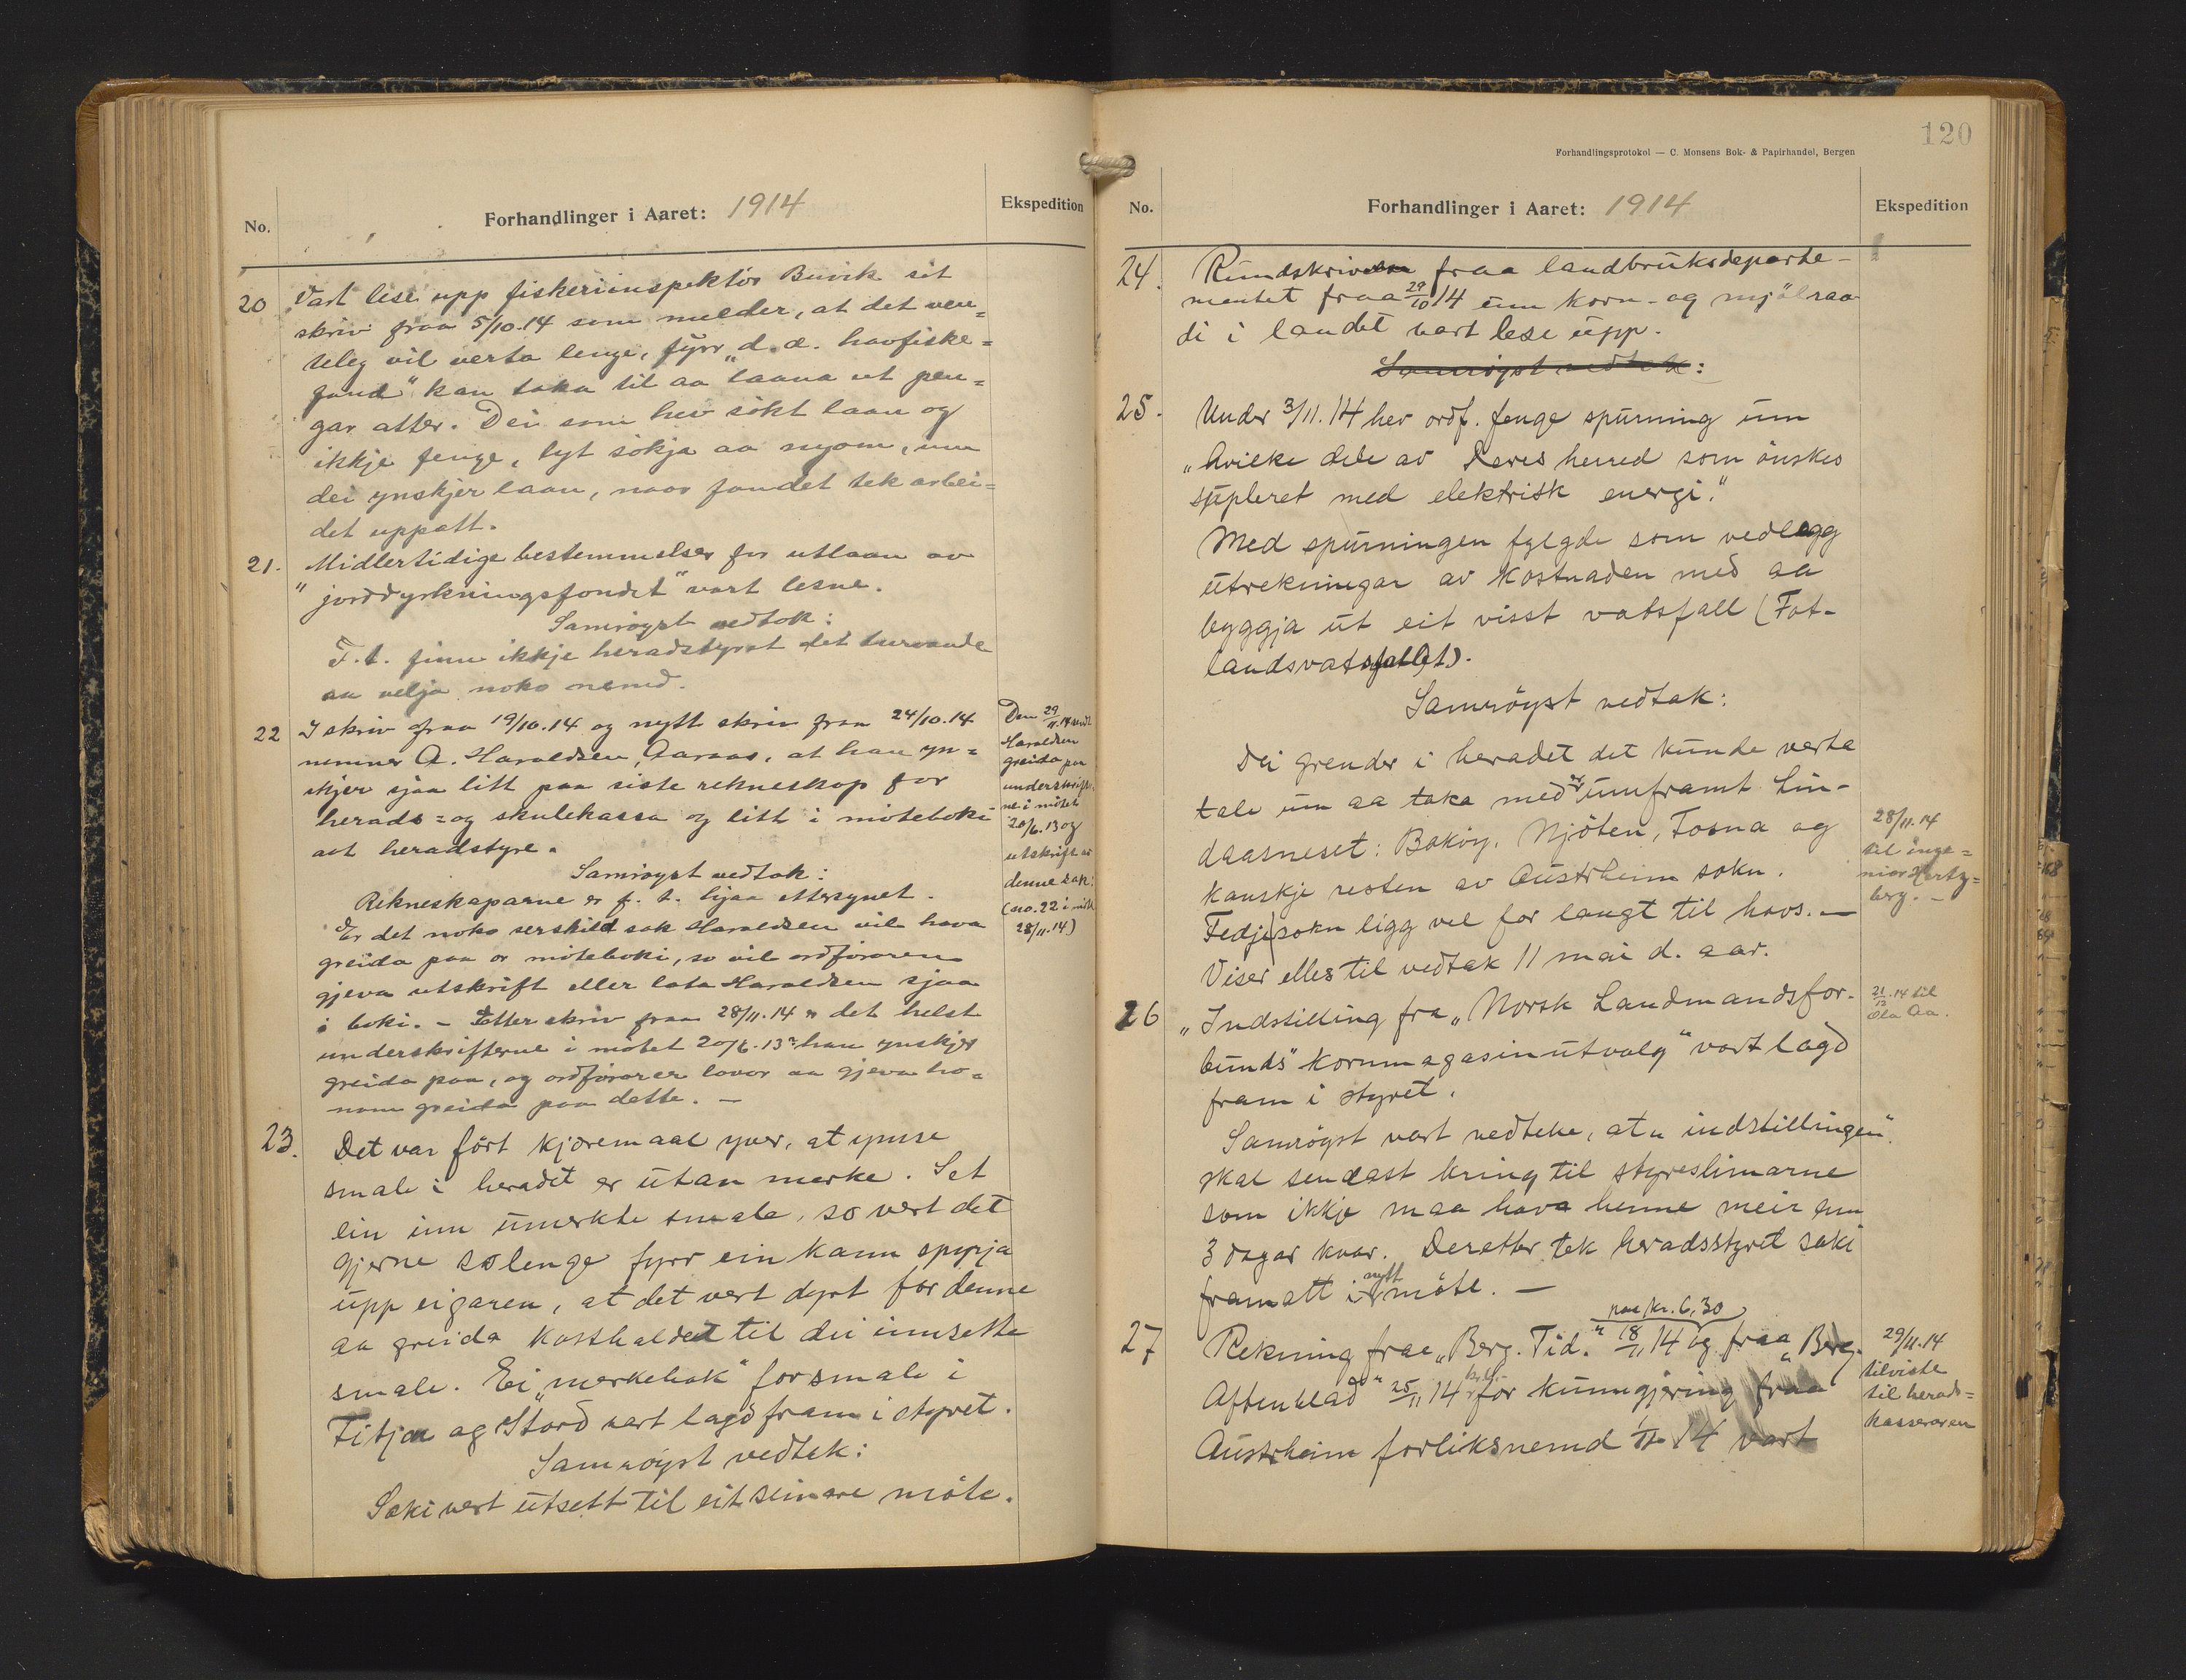 No.
Forhandlinger i Aaret: 1914
Ekspedition
20 Vart lese upp fiskeriinspektör Buvik sit
skriv fraa 5/10.14 som melder, at det ven=
teleg vil verta lenge, fyrr „d. d. havfiske=
fond" kan taka til aa laana ut pen=
gar atter. Dei som hev sökt laan og
ikkje fenge, lyt sökja aa nyom, um
dei ynskjer laan, naar fondet tek arbei=
det uppatt.
21. Midlertidige bestemmelser for utlaan av
" jorddyrkningsfondet" vart lesne.
Samröyst vedtok:
F. t. finn ikkje heradstyret det turvande
aa velja noko nemd.
22 I skriv fraa 19/10.14 og nytt skriv fraa 24/10.14
nemner A. Haraldsen, Aaraas, at han yn=
skjer sjaa litt paa siste rekneskap for
herads= og skulekassa og litt i möteboki
aat heradstyre.
Samröyst vedtok:
Rekneskaparne er f. t. hjaa ettersynet.
Er det noko serskild sak Haraldsen vil hava
greida paa or möteboki, so vil ordföraren
gjeva utskrift eller lata Haraldsen sjaa
i boki. – Etter skriv fraa 28/11.14 er det helst
underskrifterne i mötet 20/6.13 han ynskjer
greida paa, og ordförarer lovar aa gjeva ho=
nom greida paa dette. –
Den 29/11.14 sendt
Haraldsen
greida paa
underskrift-
ne i mötet
20/6.13 og
utskrift av
denne sak:
(no. 22 i möte
28/11.14)
23. Det var fört kjæremaal yver, at ymse
smale i heradet er utan merke. Set
ein inn umerkte smale, so vert det
gjerne so lenge fyrr ein kann spyrja
upp eigaren, at det vert dyrt for denne
aa greida kosthaldet til dei innsette
smale. Ei „merkebok" for smale i
Fitjar og Stord vart lagd fram i styret.
Samröyst vedtak:
Saki vert utsett til eit seinare möte.
120
Forhandlingsprotokol — C. Monsens Bok- & Papirhandel, Bergen
No.
Forhandlinger i Aaret: 1914
Ekspedition
24. Rundskriv fraa landbruksdeparte-
mentet fraa 29/10 14 um korn- og mjölraa
di i landet vart lese upp.
Samröyst vedtak:
25. Under 3/11.14 hev ordf. fenge spurning um
„hvilke dele av Deres herred som önskes
supleret med elektrisk energi."
Med spurningen fylgde som vedlegg
utrekningar av kostnaden med aa
byggja ut eit visst vatsfall (Fot-
landsvatsfallet).
Samröyst vedtak:
Dei grender i heradet det kunde verta
tale um aa taka med er umframt Lin-
daasneset: Baköy, Njöten, Fosna og
kanskje resten av Austrheim sokn.
Fedje sokn ligg vel for langt til havs. —
Viser elles til vedtak 11 mai d. aar.
28/11.14
til inge=
niör Hertz=
berg. –
26 „Indstilling fra „Norsk Landmandsfor-
bunds" kornmagasinutvalg" vart lagd
fram i styret.
Samröyst vart vedteke, at „indstillingen"
skal sendast kring til styreslimarne
som ikkje maa hava henne meir enn
3 dagar kvar. Deretter tek heradsstyret saki
framatt i nytt möte. —
21/12.14 til
Ola Aa.
27 Rekning fraa „Berg. Tid." 18/11 14 og fraa „Berg.
paa kr. 6,30
Aftenblad" 25/11 14 for kunngjering fraa
Austrheim forliksnemd 1/11 14 vart
29/11.14
tilviste
til herads=
kasseraren